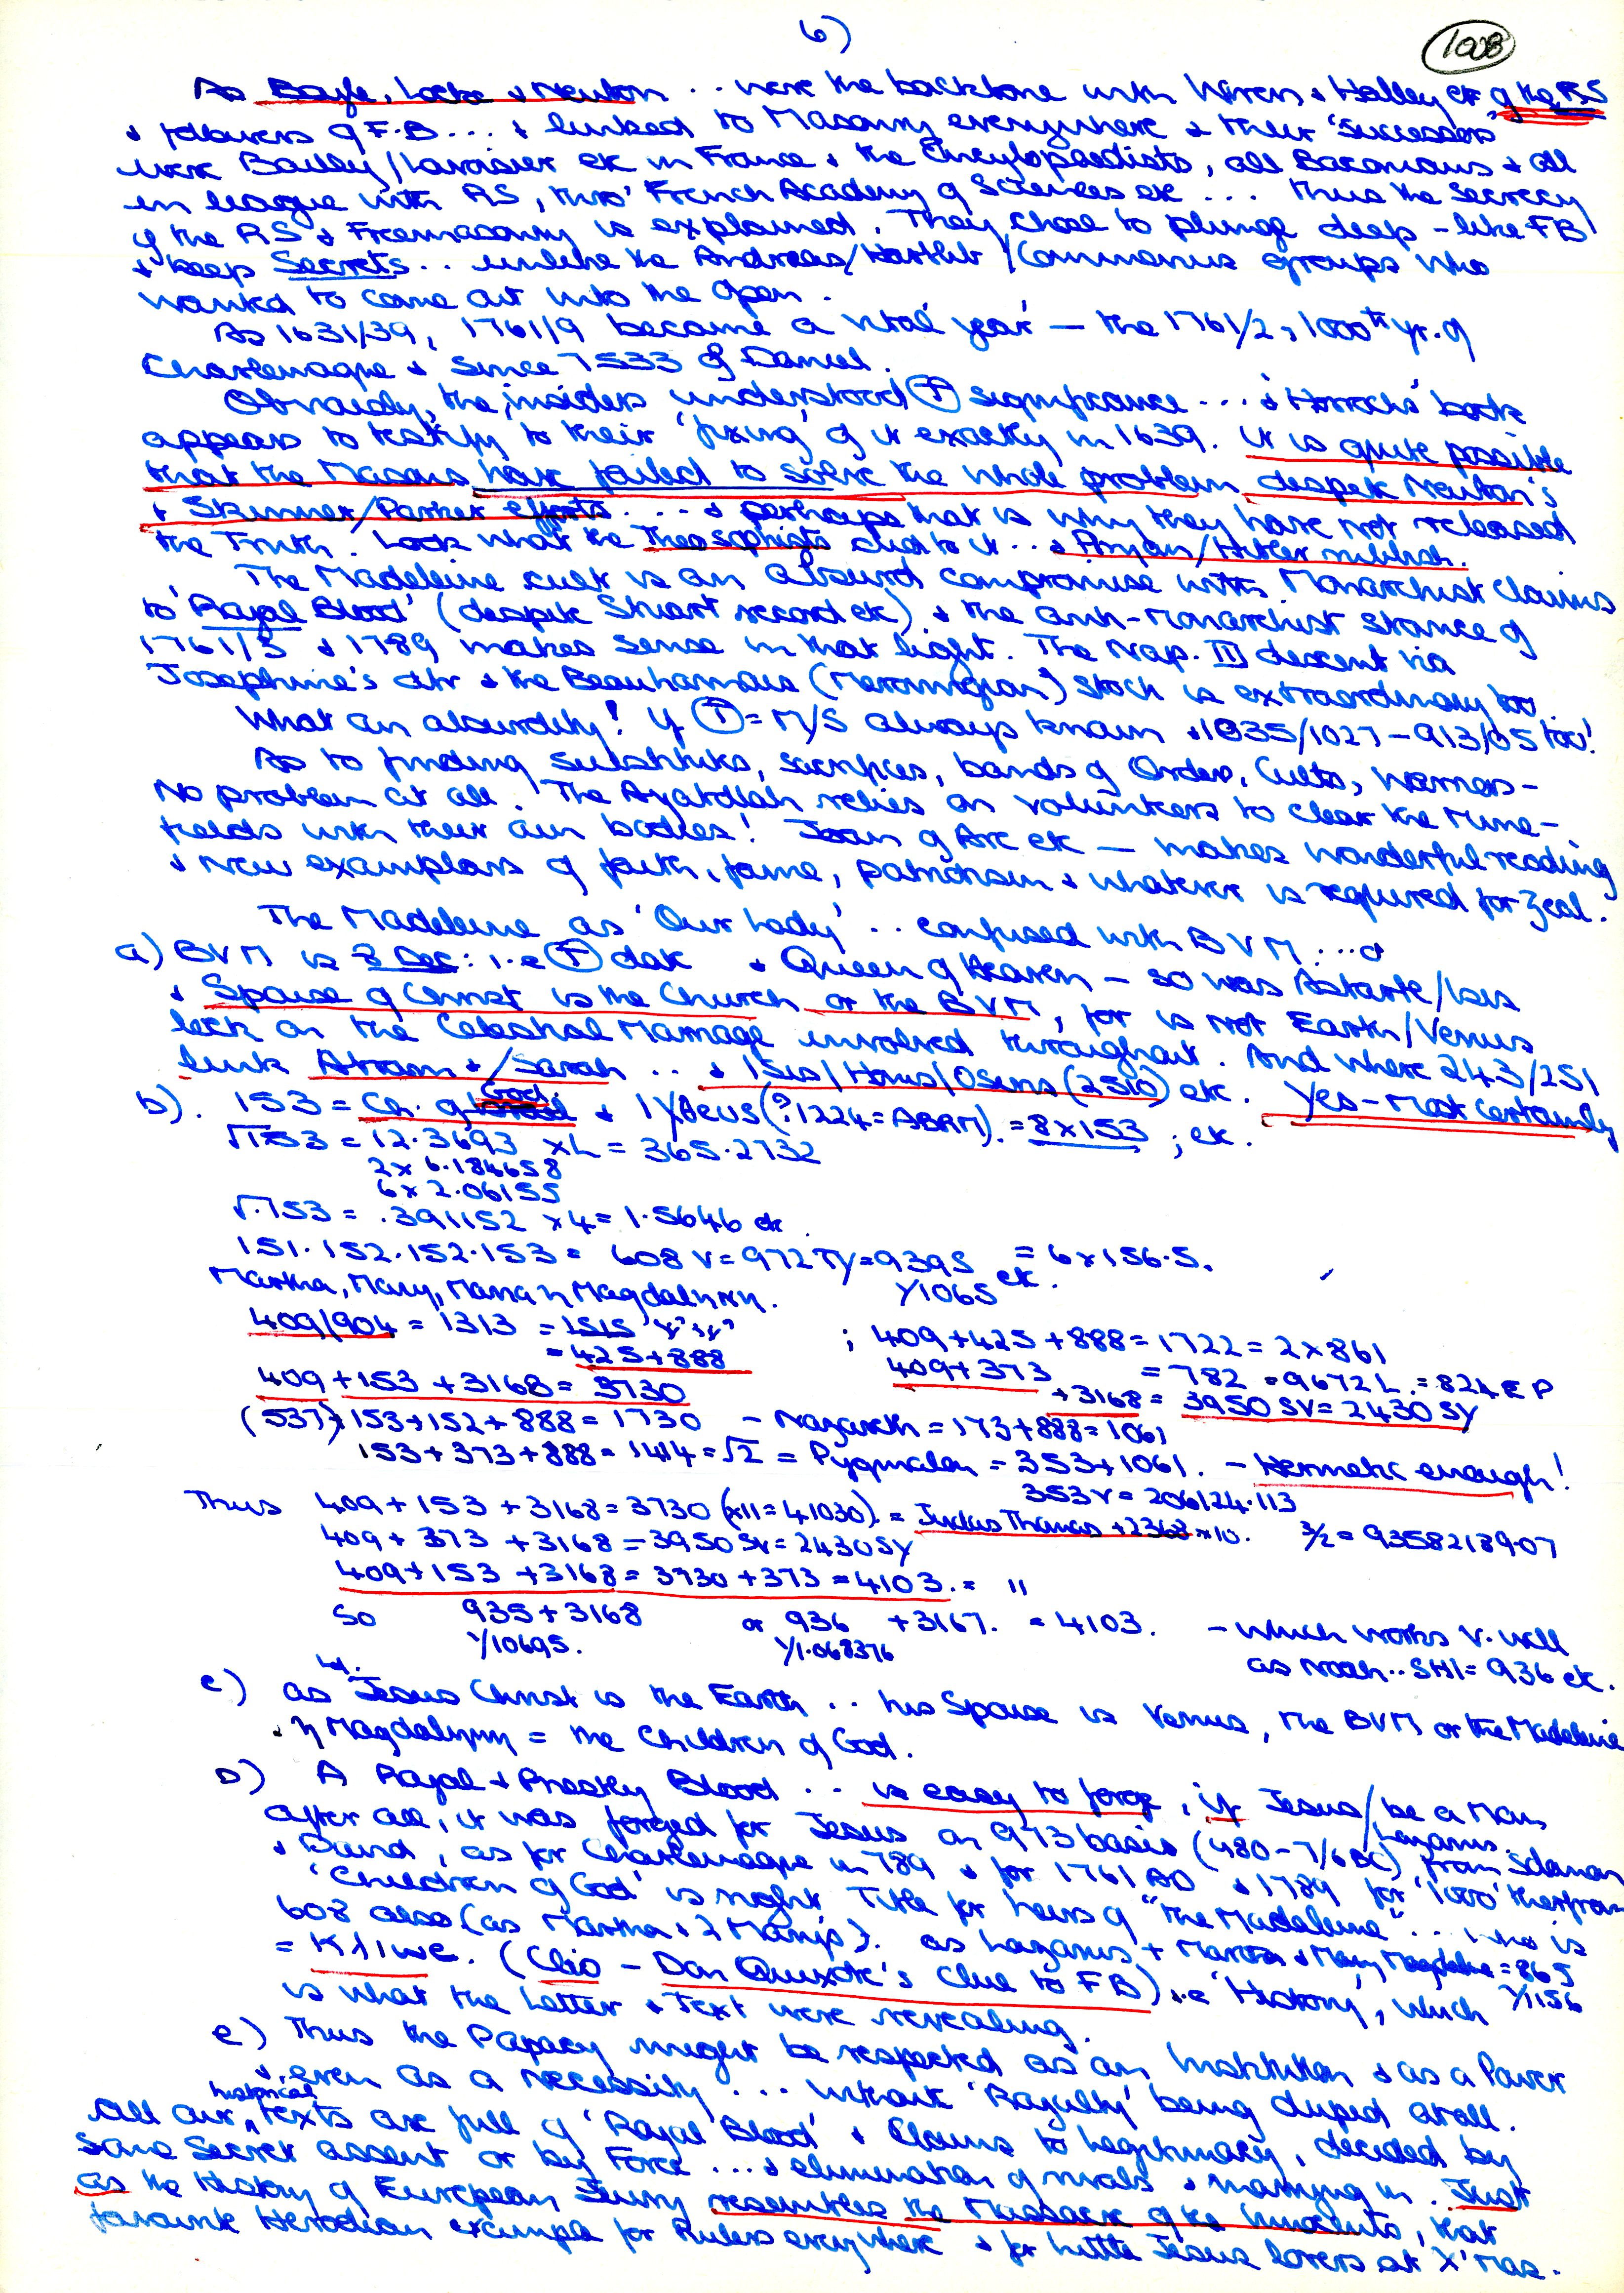 6)
1008
As Boyle, Locke & Newton .. were the backbone with Wren & Halley etc of the RS
& followers of F.B... & linked to Masonry everywhere & their 'successors'
were Bailly/Lavoisier etc in France & the Encyclopaedists, all Baconians & all
in league with RS, thro' French Academy of Sciences etc ... Thus the Secrecy
of the RS & Freemasonry is explained. They chose to plunge deep – like FB
& keep Secrets .. unlike the Andreas/Hartlib/Commenius groups who
wanted to come out into the Open.
As 1631/39, 1761/9 became a vital 'year' — the 1761/2, 1000th yr. of
Charlemagne & since 7533 of Daniel.
Obviously, the insiders understood (T) significance ... & Horrocks' book
appears to testify to their 'fixing' of it exactly in 1639. It is quite possible
that the Masons have failed to solve the whole problem, despite Newton's
& Skinner/Parker efforts .... & perhaps that is why they have not released
the Truth. Look what the Theosophists did to it .. & Aryan/Hitler rubbish.
The Madeleine cult is an absurd compromise with Monarchist claims
to 'Royal Blood' (despite Stuart record etc) & the anti-monarchist stance of
1761/3 & 1789 makes sense in that light. The Nap. III descent via
Josephine's dtr & the Beauharnais (Merovingian?) stock is extraordinary too.
What an absurdity! If (T) = M/S always known & 1035/1027 – 913/05 too!
As to finding substitutes, sacrifices, bands of Orders, Cults, Warriors –
No problem at all. The Ayatollah relies on volunteers to clear the mine-
fields with their own bodies! Joan of Arc etc — makes wonderful reading
& new examplars of faith, fame, patriotism & whatever is required for Zeal.
The Madeleine as 'Our Lady' .. confused with BVM ...
a) BVM is 8 Dec: i.e (T) date & Queen of Heaven – so was Astarte/Isis
& Spouse of Christ is the Church or the BVM, for is not Earth/Venus
lock on the Celestial Marriage involved throughout. And where 243/251
link Abram & /Sarah .. & Isis/Horus/Osiris (2510) etc. Yes – Most Certainly
b). 153 = Ch. of God & 1/Deus (?1224 = ABRM). = 8 x 153 ; etc.
√153 = 12.3693 x L = 365.2732
2 x 6.184658
6 x 2.06155
√.153 = .391152 x 4 = 1.5646 etc.
151. 152. 152. 153 = 608 V = 972 TY = 9395 = 6 x 156.5.
Martha, Mary, Maria η Magdalηνη. Y1065 etc.
409/904 = 1313 = 1515
= 425 + 888
; 409 + 425 + 888 = 1722 = 2 x 861
409 + 373 = 782 = 9672 L. = 824 EP
409 + 153 + 3168 = 3730
+ 3168 = 3950 SV = 2430 SY
(537) + 153 + 152 + 888 = 1730 – Nazareth = 173 + 888 = 1061
153 + 373 + 888 = 1414 = √2 = Pygmalion = 353 + 1061. – Hermetic enough!
353 V = 206124.113
Thus 409 + 153 + 3168 = 3730 (x11 = 41030). = Judas Thomas + 2368 x 10. 3/2 = 9358218907
409 + 373 + 3168 = 3950 SV = 2430 SY
409 + 153 + 3168 = 3730 + 373 = 4103. = "
So 935 + 3168 or 936 + 3167. = 4103. – which works v. well
Y10695. Y1.068376 as Noah .. SHI = 936 etc.
c) as Jesus Christ is the Earth .. his Spouse is Venus, the BVM or the Madeleine
& η Magdalηνη = the Children of God.
D) A Royal & Priestly Blood .. is easy to forge, if Jesus/Lazarus be a Man
after all, it was forged for Jesus on 973 basis (480 – 7/6 BC) from Solomon
& David, as for Charlemagne in 789 & for 1761 AD & 1789 for '1000' therefrom
'Children of God' is right Title for heirs of "the Madeleine" .. who is
608 also (as Martha & 2 Marys). as Lazarus + Martha & Mary Magdalene = 865
Y1156
= Κλιως. (Clio – Don Quixote's clue to FB) i.e 'History', which
is what the Letter & Text were revealing.
e) Thus the Papacy might be respected as an Institution & as a Power
& even as a necessity ... without 'Royalty' being duped at all.
All our historical texts are full of 'Royal Blood' & Claims to Legitimacy, decided by
some Secret assent or by Force ... & elimination of rivals & marrying in. Just
as the History of European Jewry resembles the Massacre of the Innocents, that
favourite Herodian example for Rulers everywhere & for little Jesus lovers at X'mas.